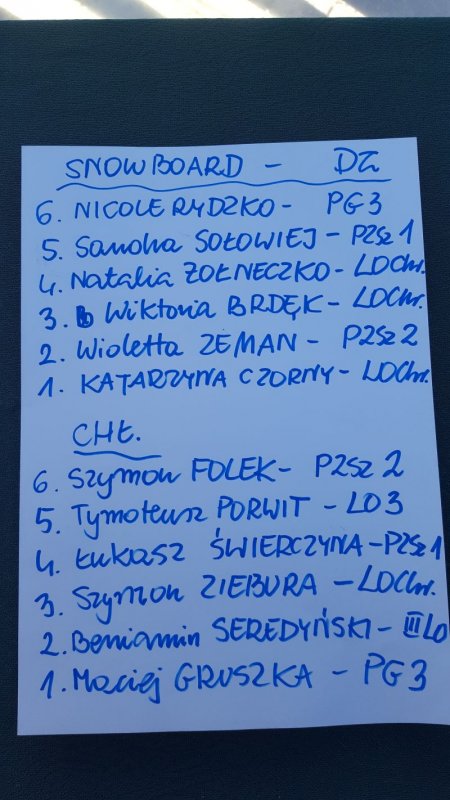 SNOWBOARD - DZ
6. NICOLE RYDZKO - PG3
5. Sandra SOŁOWIEJ - PZSZ 1
4. Natalia ŻOŁNECZKO - LOChr.
3. Wiktoria BRDĘK - LOChr.
2. Wioletta ZEMAN - PZSZ 2
1. KATARZYNA CZORNY - LOChr.
CHŁ.
6. Szymon FOLEK - PZSZ 2
5. Tymoteusz PORWIT - LO3
4. Łukasz ŚWIERCZYNA - PZSZ 1
3. Szymon ZIEBURA - LOChr.
2. Beniamin SEREDYŃSKI - III LO
1. Maciej GRUSZKA - PG3